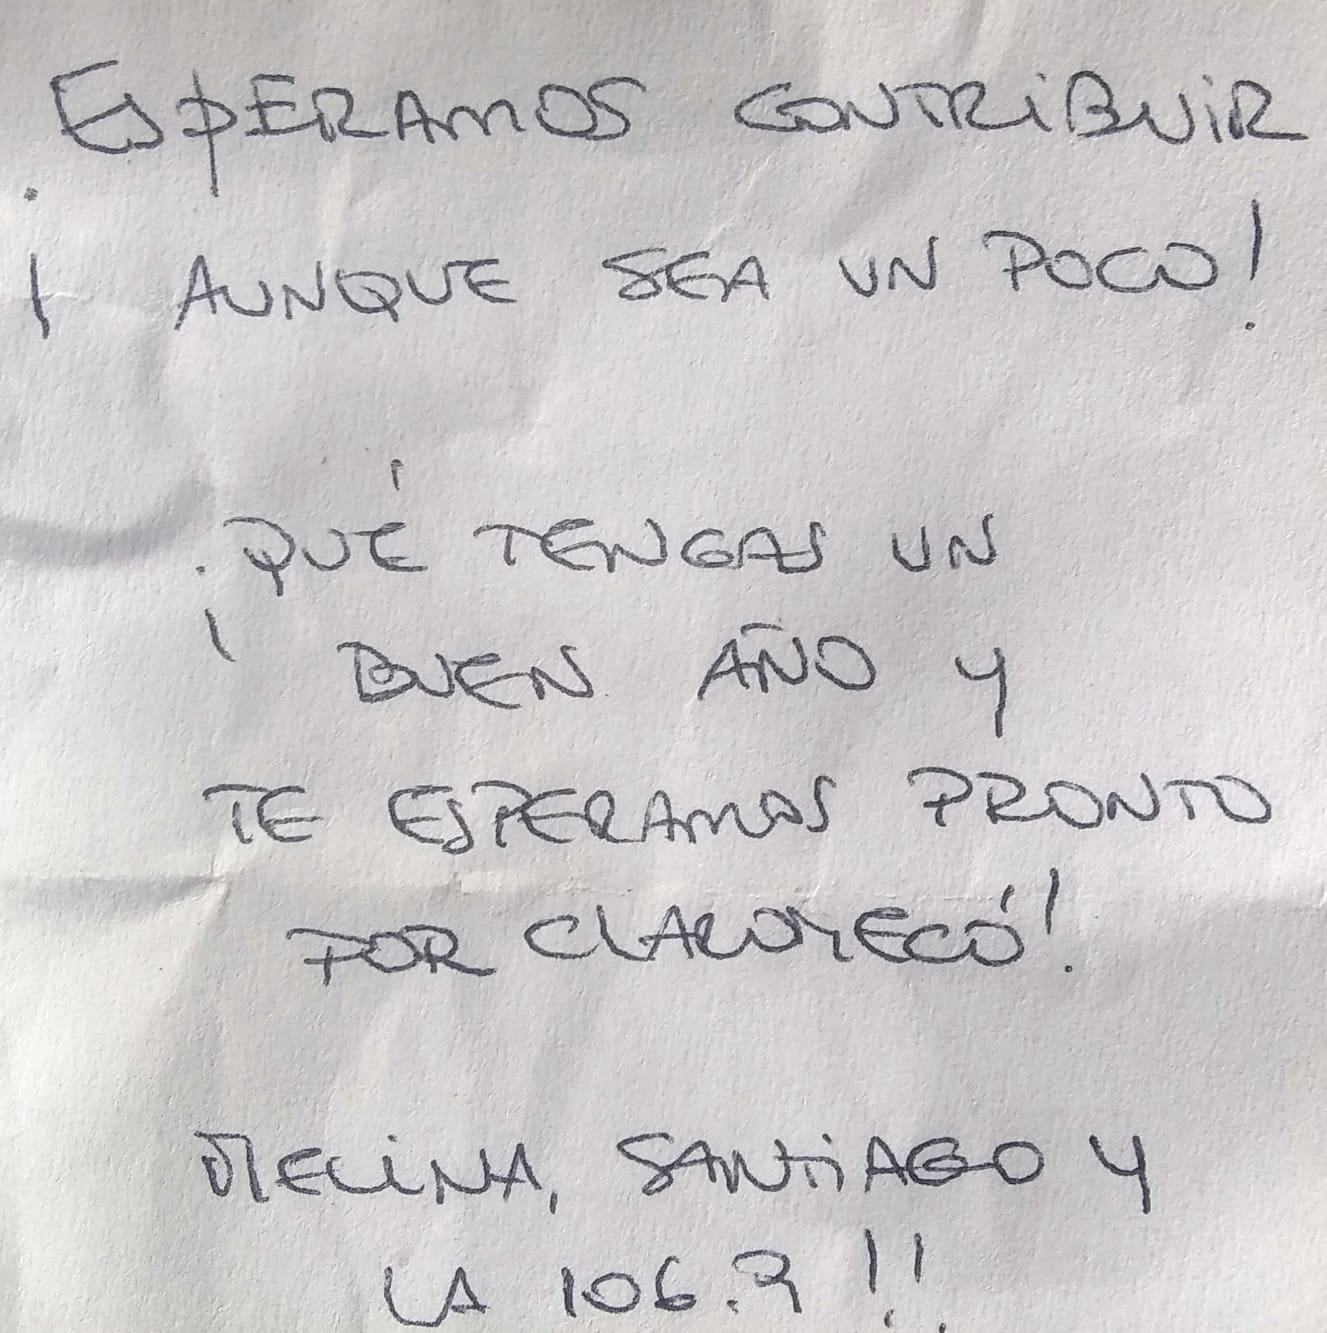 ESPERAMOS CONTRIBUIR
¡ AUNQUE SEA UN POCO!
¡QUÉ TENGAS UN
BUEN AÑO Y
TE ESPERAMOS PRONTO
POR CLAROMECÓ!
MELINA, SANTIAGO Y
LA 106.9 !!